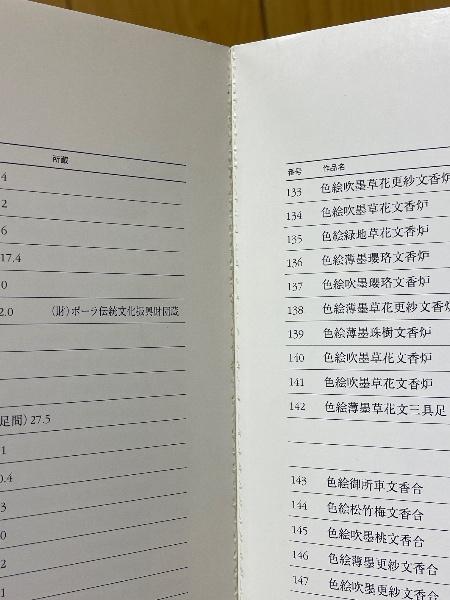 所蔵
4
2
6
17.4
0
2.0 （財）ポーラ伝統文化振興財団蔵
足間）27.5
1
0.4
3
0
2
1
番号 作品名
133 色絵吹墨草花更紗文香炉
134 色絵吹墨草花文香炉
135 色絵緑地草花文香炉
136 色絵薄墨瓔珞文香炉
137 色絵吹墨瓔珞文香炉
138 色絵薄墨草花更紗文香炉
139 色絵薄墨珠樹文香炉
140 色絵吹墨草花文香炉
141 色絵吹墨草花文香炉
142 色絵薄墨草花文三具足
143 色絵御所車文香合
144 色絵松竹梅文香合
145 色絵吹墨桃文香合
146 色絵薄墨更紗文香合
147 色絵吹墨更紗文香合